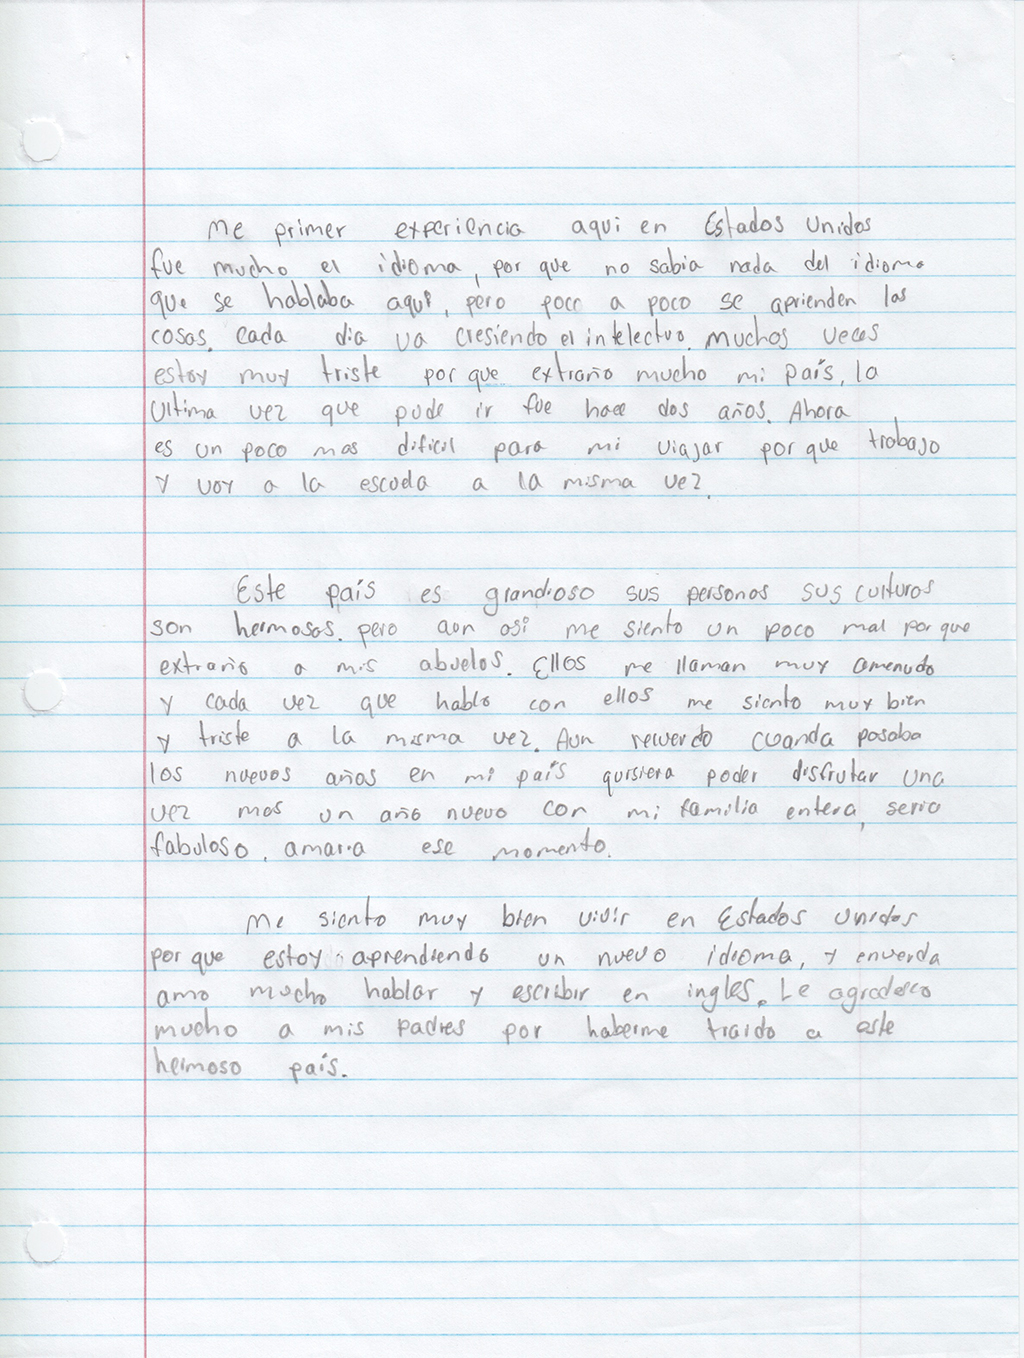 Me primer experiencia aqui en Estados Unidos
fue mucho el idioma, por que no sabia nada del idioma
que se hablaba aquí, pero poco a poco se aprienden las
cosas. Cada dia va cresiendo el intelectuo. Muchos veces
estoy muy triste por que extraño mucho mi país, la
Ultima vez que pude ir fue hace dos años. Ahora
es un poco mas dificil para mi viajar por que trabajo
y voy a la escuela a la misma vez.
Este país es grandioso sus personas sus culturas
son hermosas. pero aun así me siento un poco mal por que
extraño a mis abuelos. Ellos me llaman muy amenudo
y cada vez que hablo con ellos me siento muy bien
y triste a la misma vez. Aun recuerdo cuanda pasaba
los nuevos años en mi país quisiera poder disfrutar una
vez mas un año nuevo con mi familia entera, seria
fabuloso, amaria ese momento.
Me siento muy bien vivir en Estados Unidos
por que estoy aprendiendo un nuevo idioma, y enverda
amo mucho hablar y escribir en ingles. Le agradesco
mucho a mis padres por haberme traido a este
hermoso país.